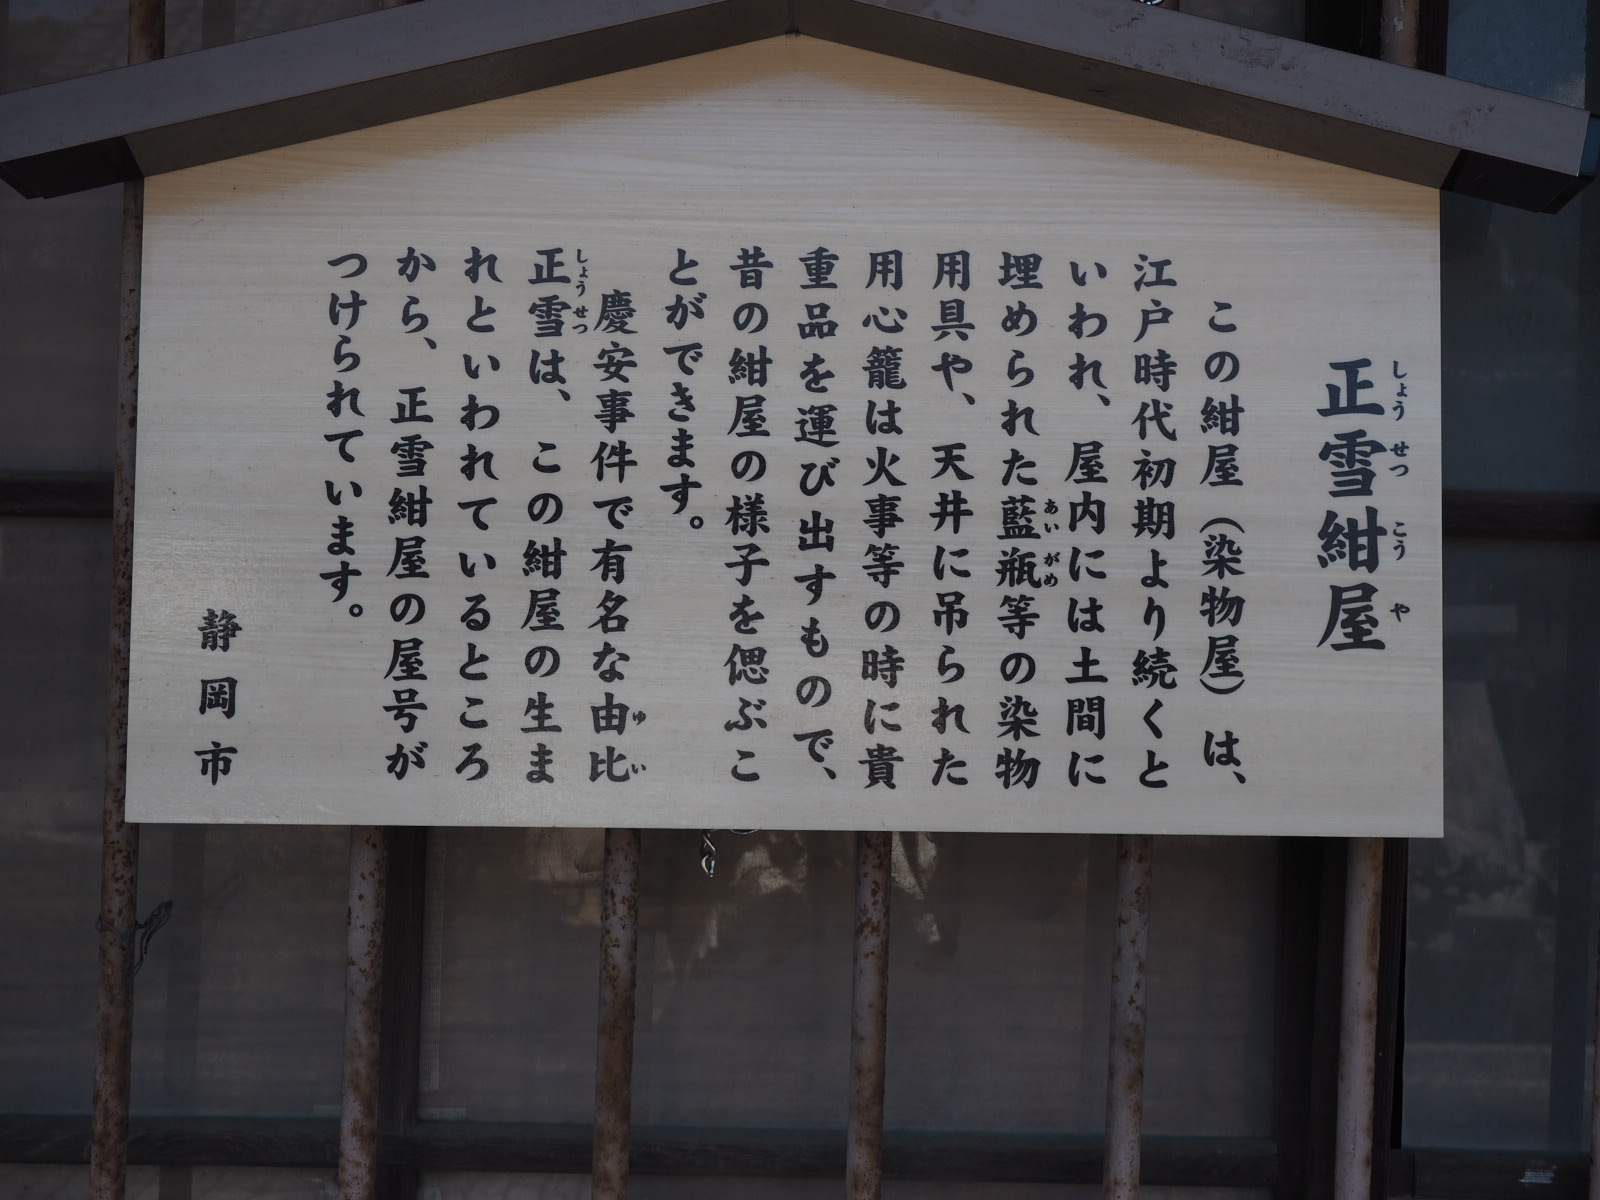 正雪紺屋
しょうせつこうや
この紺屋（染物屋）は、
江戸時代初期より続くと
いわれ、屋内には土間に
埋められた藍瓶等の染物
あいがめ
用具や、天井に吊られた
用心籠は火事等の時に貴
重品を運び出すもので、
昔の紺屋の様子を偲ぶこ
とができます。
慶安事件で有名な由比
ゆい
正雪は、この紺屋の生ま
しょうせつ
れといわれているところ
から、正雪紺屋の屋号が
つけられています。
静岡市